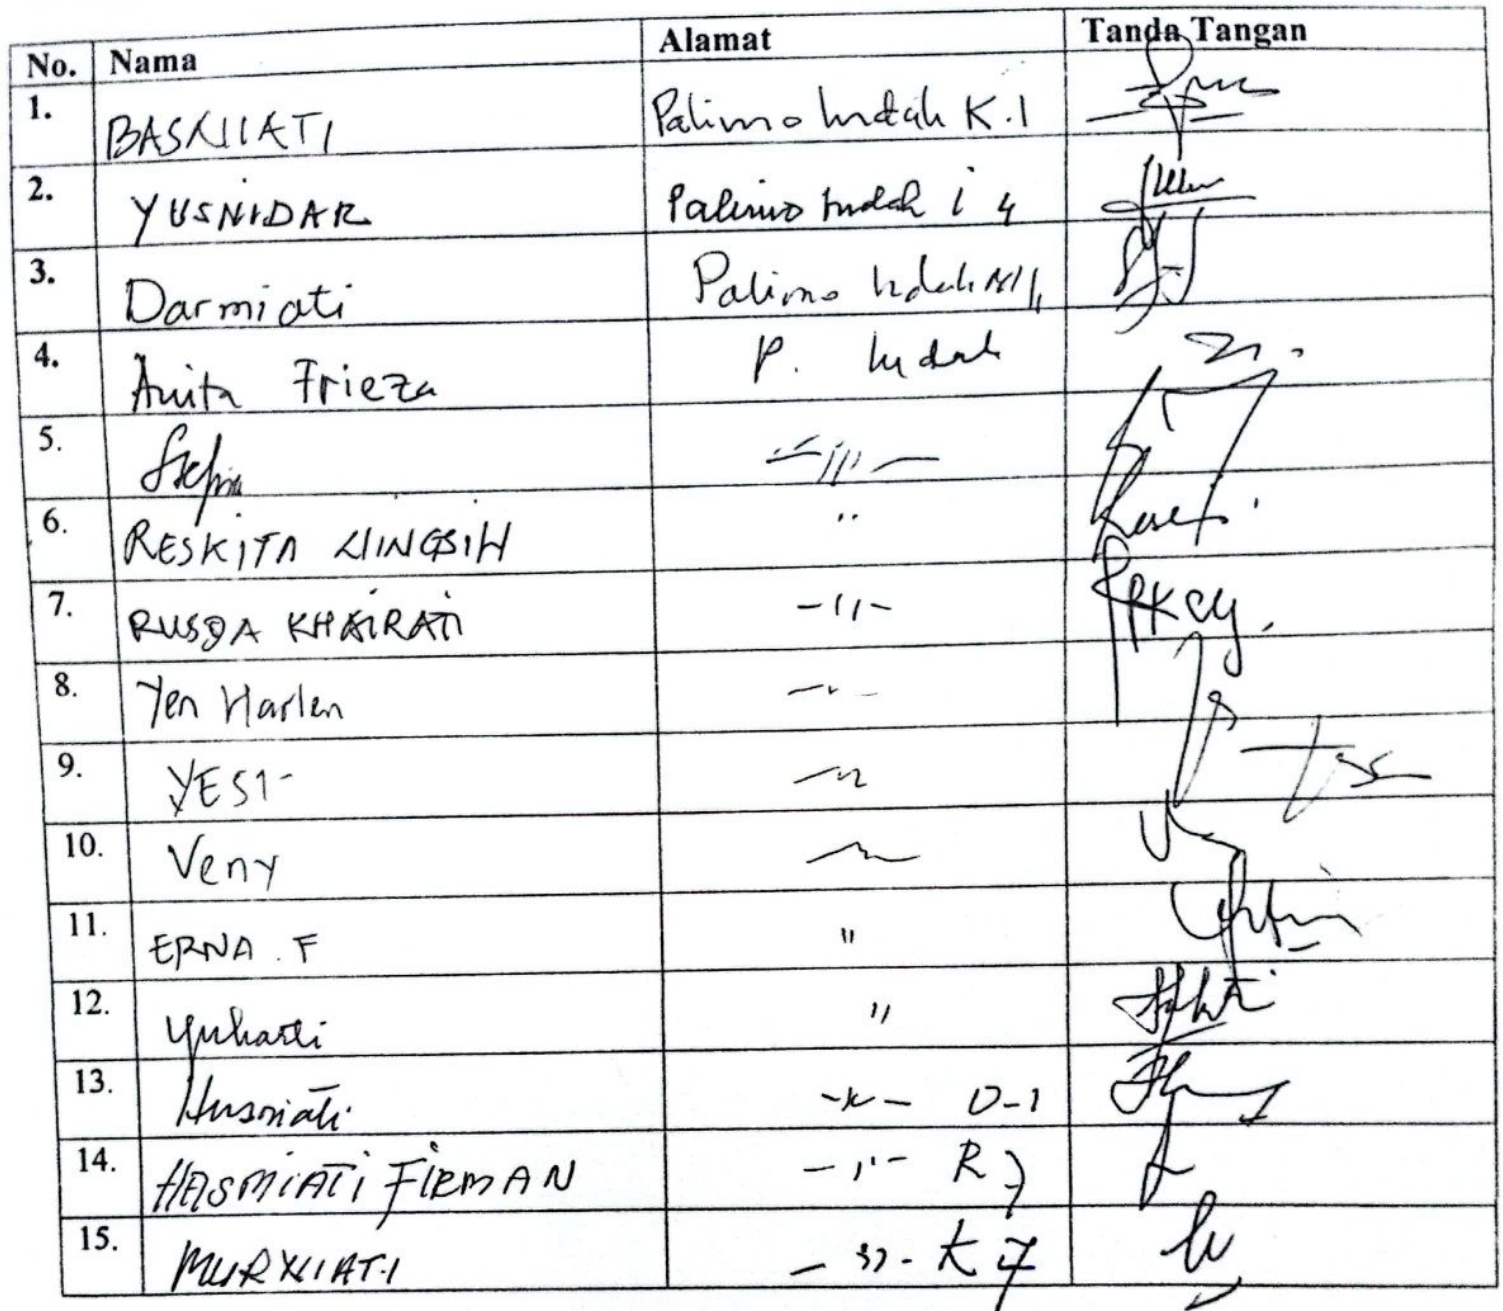 No. Nama Alamat Tanda Tangan
1. BASNIATI Palimo Indah K.1
2. YUSNIDAR Palimo Indah i 4
3. Darmiati Palimo Indah
4. Anita Frieza P. Indah
5. -"-
6. RESKITA NINGSIH "
7. RUSDA KHAIRATI -"-
8. Yen Harlen -"-
9. YESI -"-
10. Veny
11. ERNA . F "
12. Yuharti "
13. Husniati -"- D-1
14. HASMIATI FIRMAN -"- R 7
15. MURNIATI -"- K 7